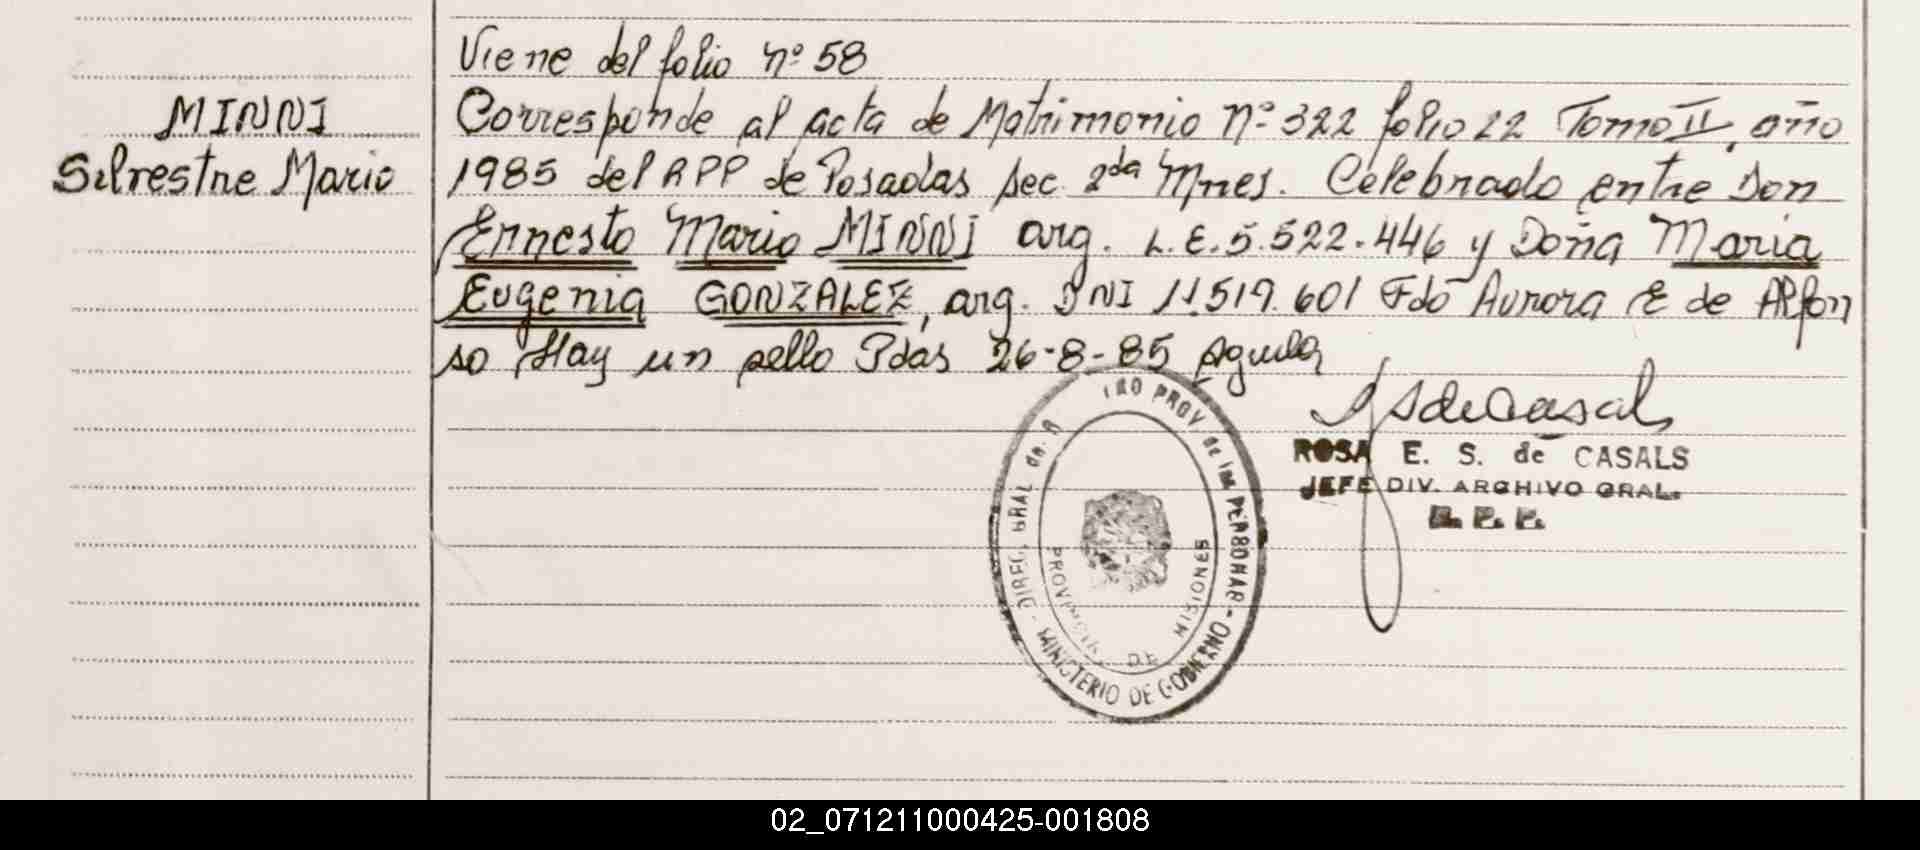 Viene del folio nº 58
MINNI
Silvestre Mario
Corresponde al acta de Matrimonio Nº 322 folio 22 Tomo II, año
1985 del RPP de Posadas sec 2da Mnes. Celebrado entre Don
Ernesto Mario MINNI arg. L.E. 5.522.446 y Doña Maria
Eugenia GONZALEZ, arg. DNI 11.519.601 Fdo Aurora E de Alfon
so Hay un sello Pdas 26-8-85
ROSA E. S. de CASALS
JEFE DIV. ARCHIVO GRAL.
R. P. P.
DIREC. GRAL del R TRO PROV de las PERSONAS - MINISTERIO DE GOBIERNO
PROVINCIA DE MISIONES
02_071211000425-001808